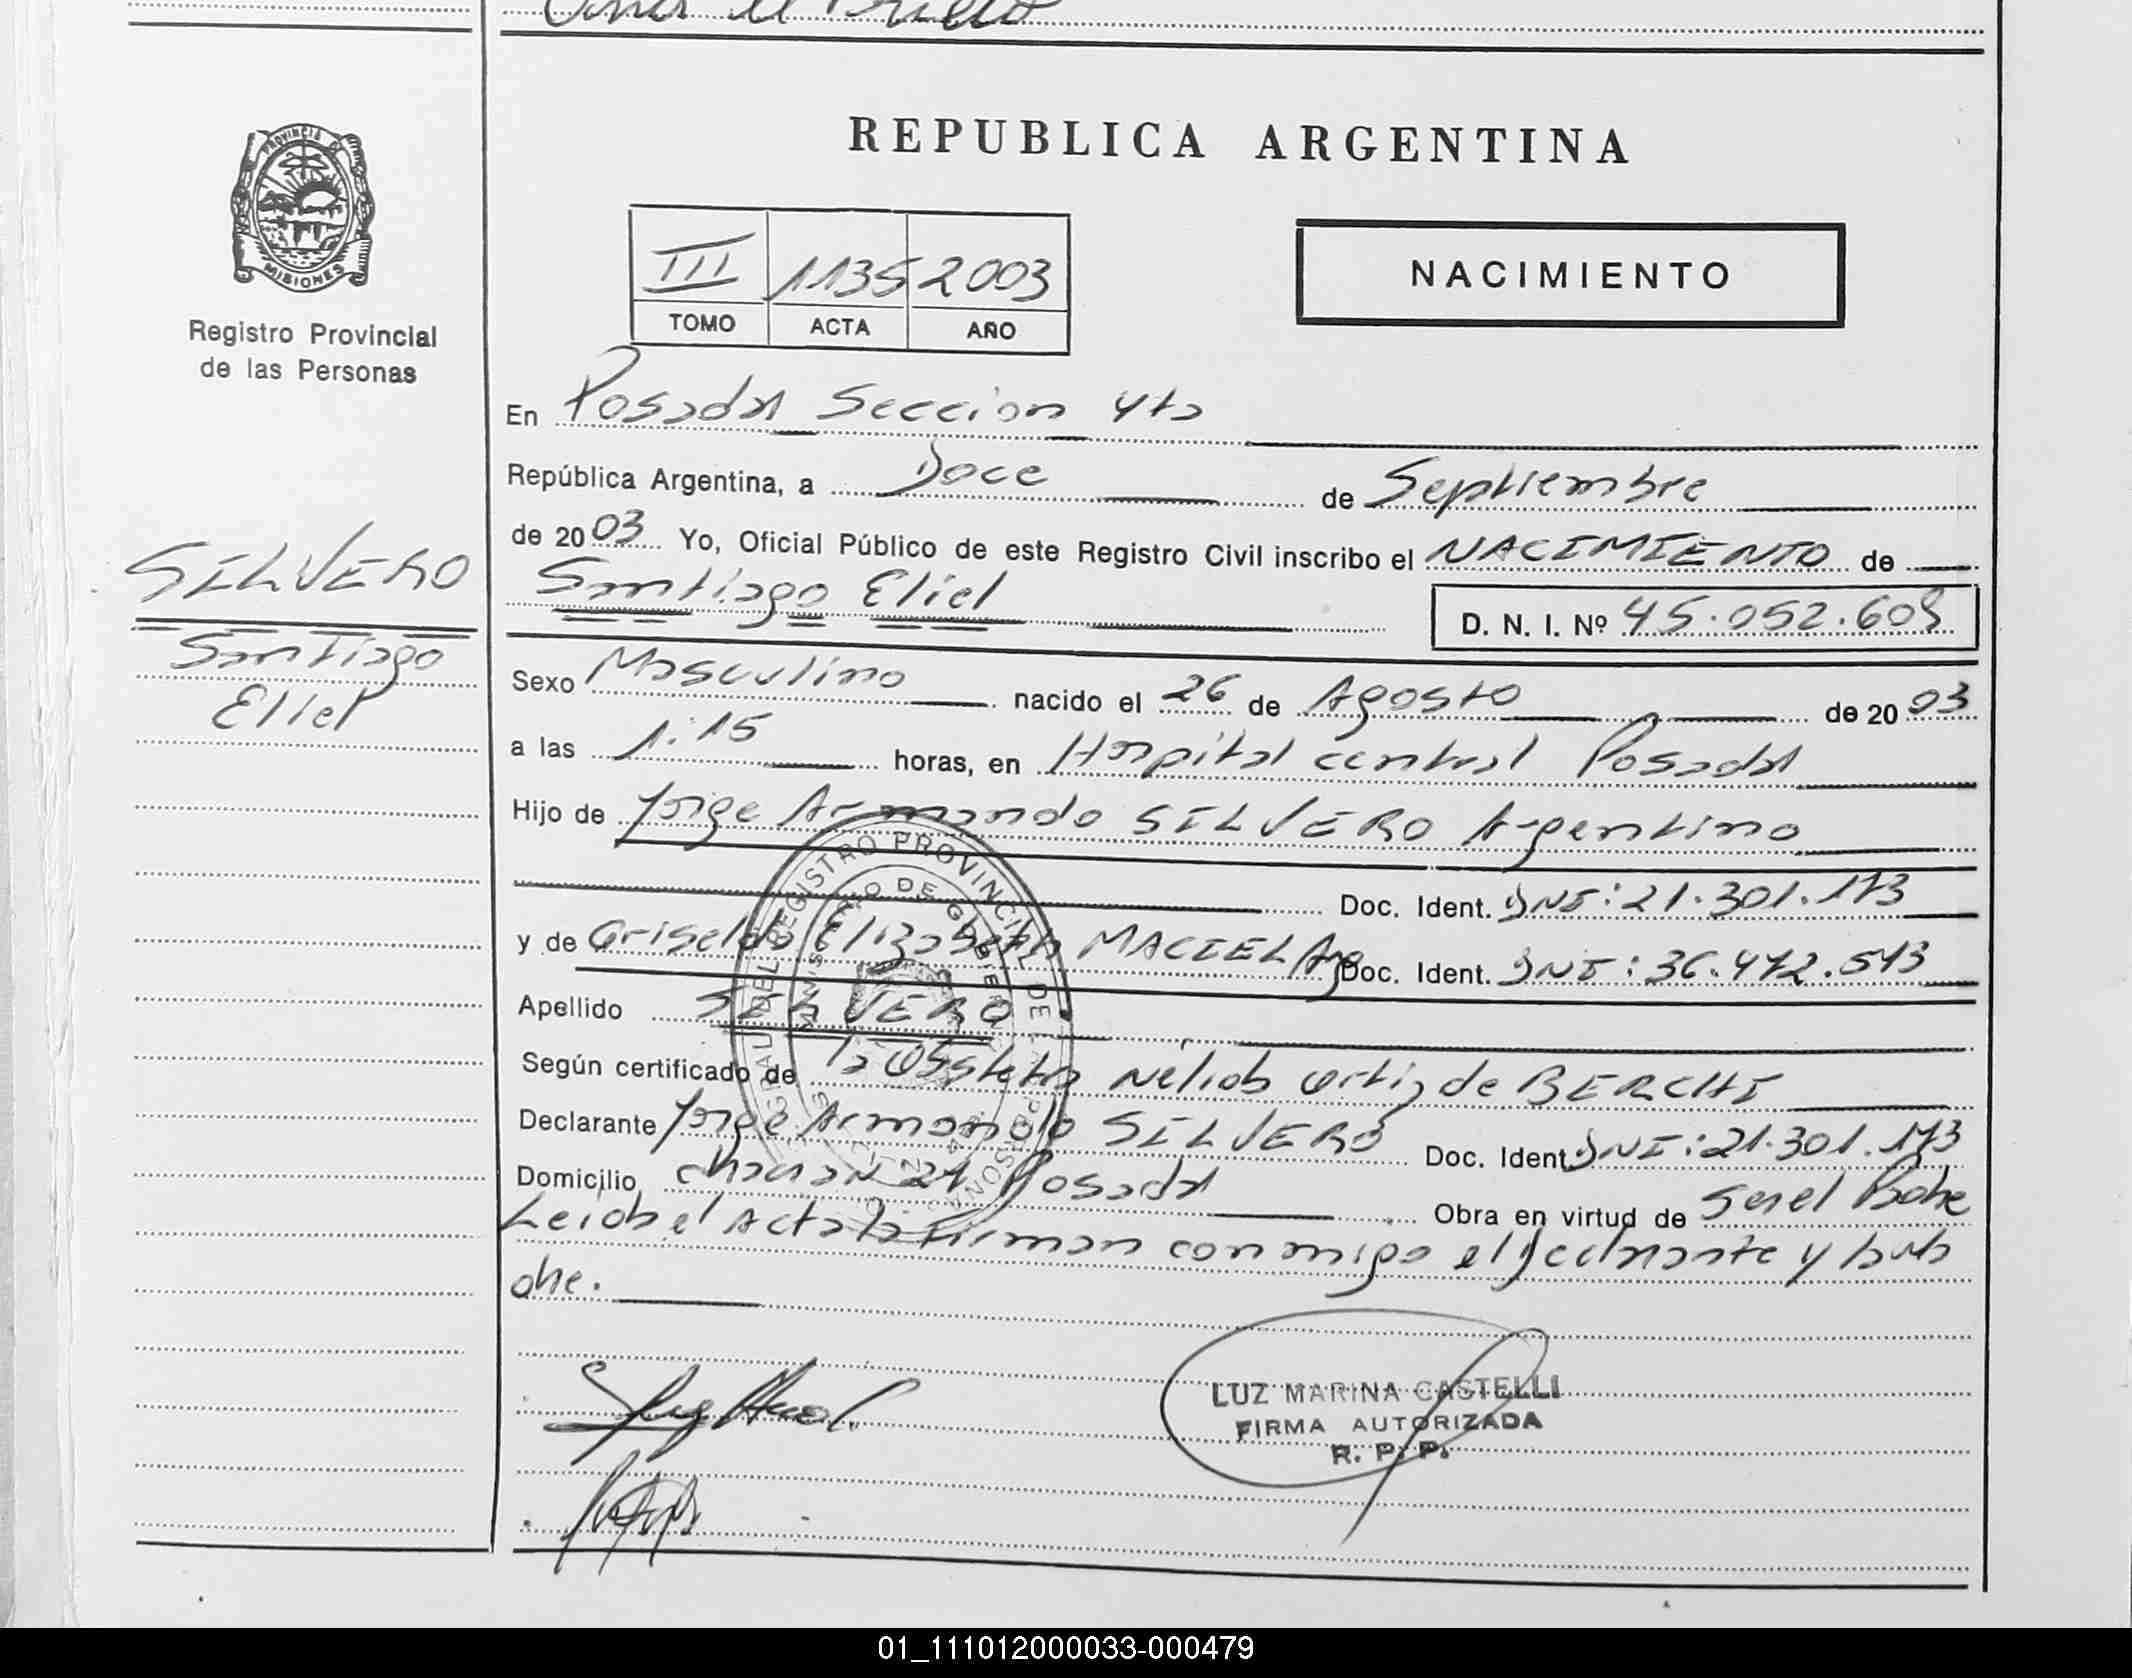 REPUBLICA ARGENTINA
PROVINCIA DE
MISIONES
Registro Provincial
de las Personas
III 1135 2003
TOMO ACTA AÑO
NACIMIENTO
En Posadas Seccion 4ta
República Argentina, a Doce de Septiembre
de 2003 Yo, Oficial Público de este Registro Civil inscribo el NACIMIENTO de
Santiago Eliel D. N. I. Nº 45.052.608
SILVERO
Santiago
Eliel
Sexo Masculino nacido el 26 de Agosto de 2003
a las 1:15 horas, en Hospital central Posadas
Hijo de Jorge Armando SILVERO Argentino
Doc. Ident. DNI: 21.301.173
y de Griselda Elizabeth MACIEL Arg Doc. Ident. DNI: 36.472.573
Apellido SILVERO
Según certificado de la Obstetra Nelida Ortiz de BERCHI
Declarante Jorge Armando SILVERO Doc. Ident DNI: 21.301.173
Domicilio chacra 24 Posadas Obra en virtud de ser el Padre
Leida el Acta la Firman conmigo el declarante y
LUZ MARINA CASTELLI
FIRMA AUTORIZADA
R. P. P.
01_111012000033-000479